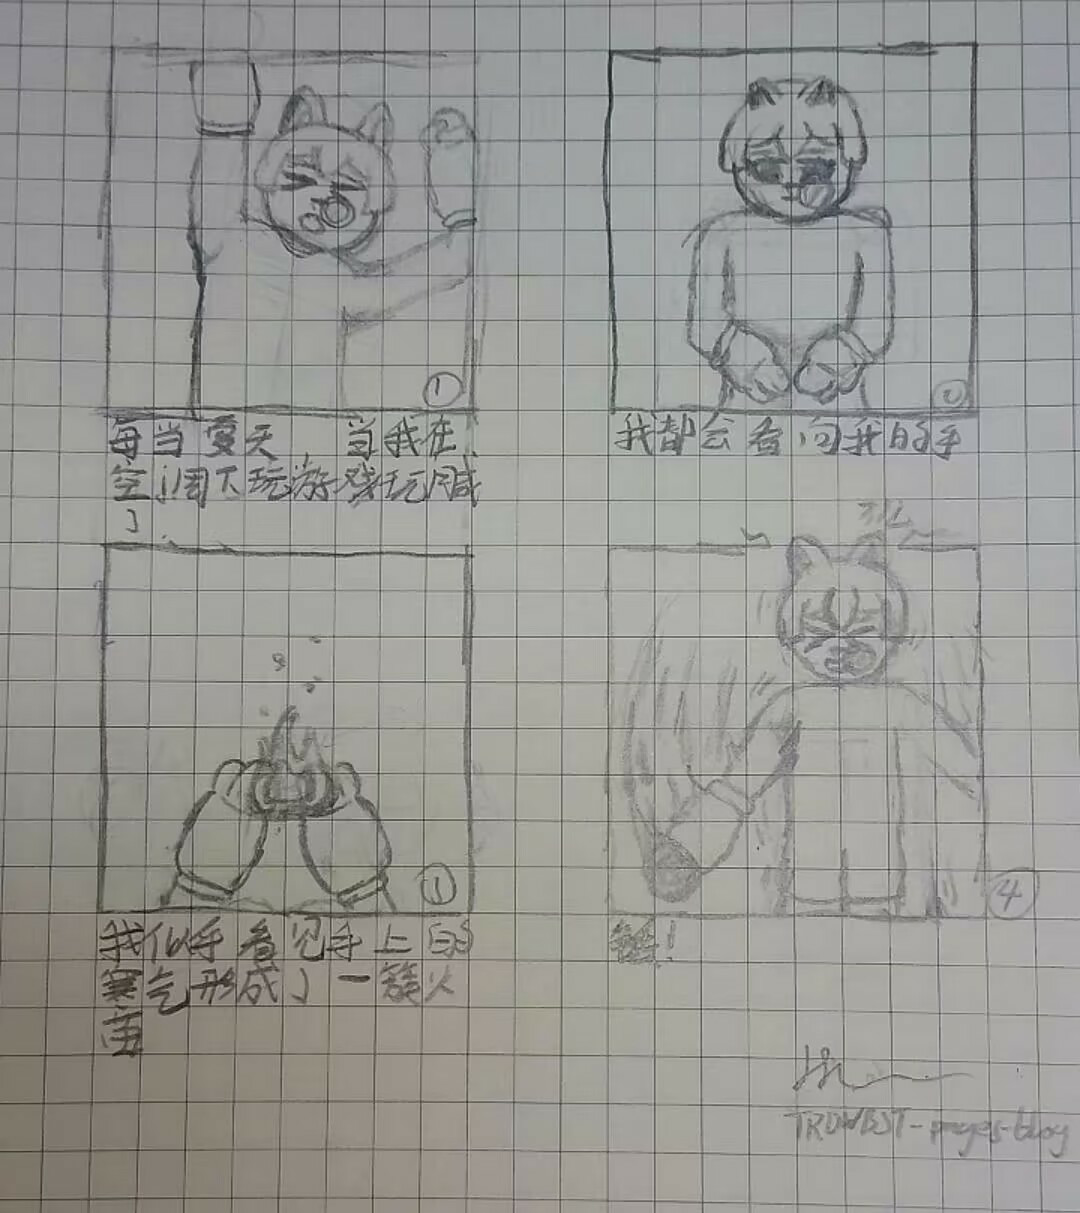 ①
每当夏天，当我在
空调下玩游戏玩
了
②
我都会看向我的手
③
我似乎看见手上的
寒气形成了一簇火
苗
④
TROWBST-pages-blog